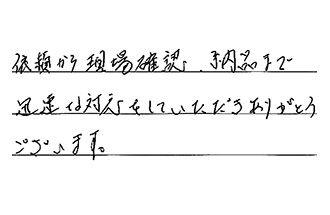 依頼から現場確認、納品まで
迅速な対応をしていただきありがとう
ございます。